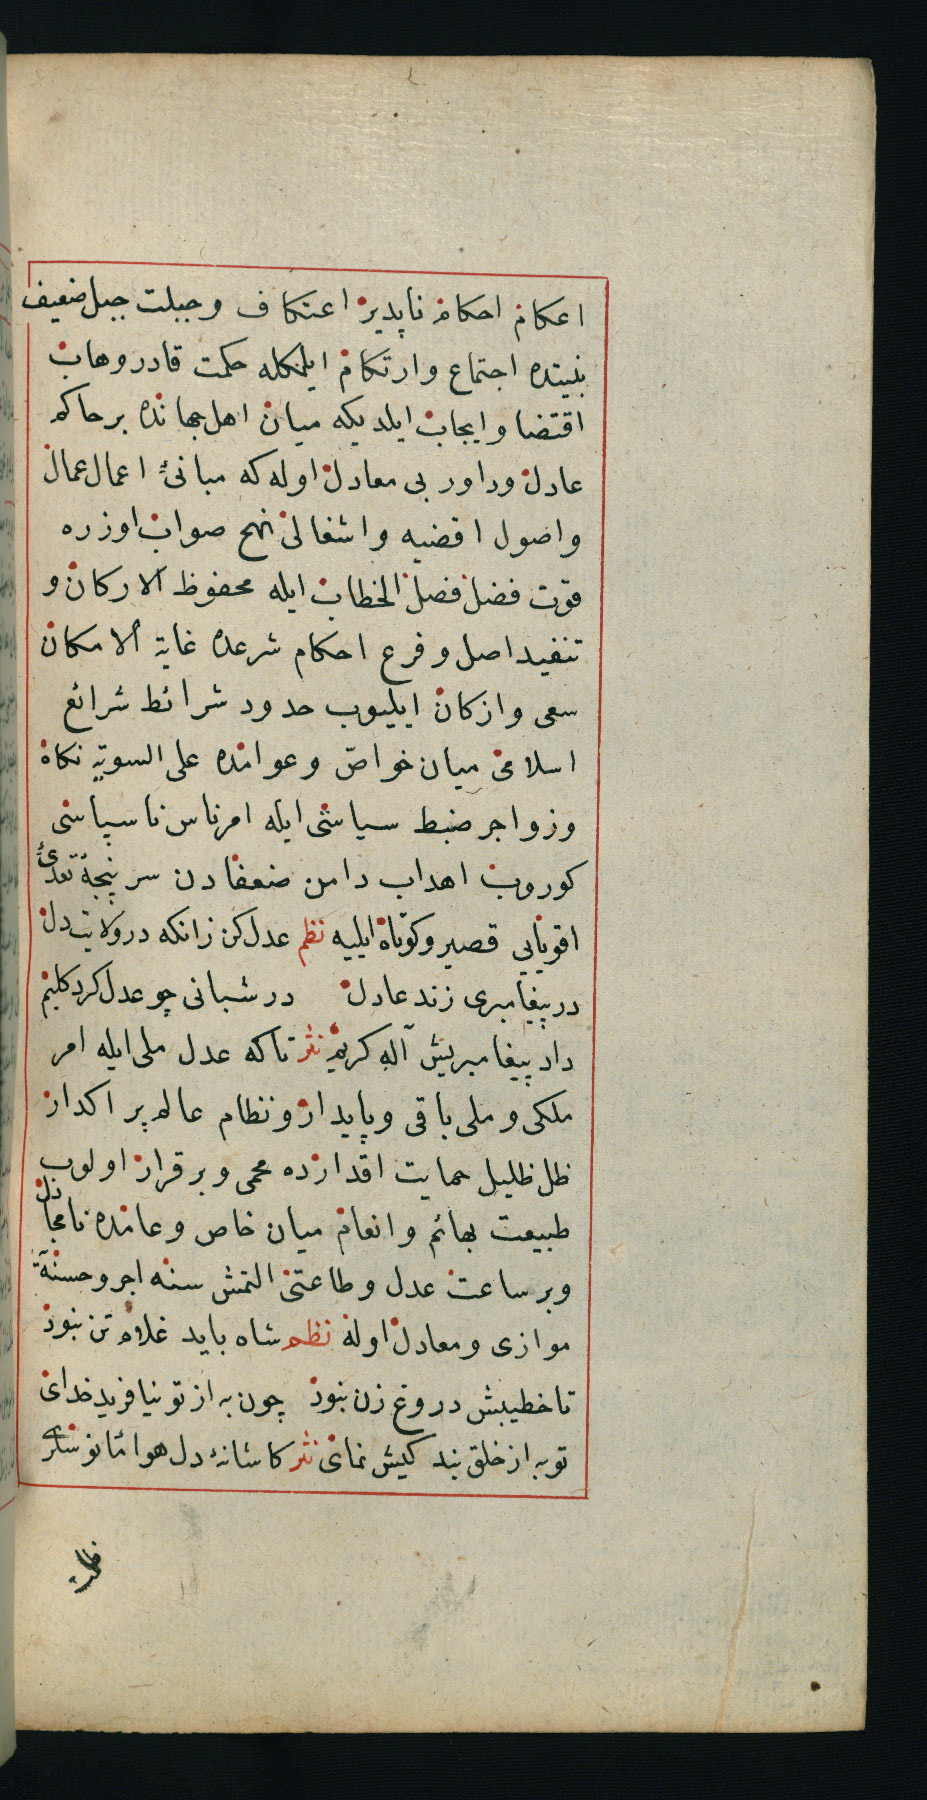 اعكام احكام ناپدیر اعتكاف وجبلت جبل ضعیف
بنیتده اجتماع وارتكام ایلمكله حكمت قادر وهاب
اقتضا وایجاب ایلدیكه میان اهل جهانده بر حاكم
عادل وداور بی معادل اوله كه مبانیٔ اعمال عمال
واصول اقضیه واشغالی نهج صواب اوزره
قوت فضل فصل الخطاب ایله محفوظ الاركان و
تنفید اصل وفرع احكام شرعده غایة الامكان
سعی وازكان ایلیوب حدود شرائط شرائع
اسلامی میان خواصّ وعوامده علی السویّه نكاه
وزواجر ضبط سیاسَتی ایله امر ناس ناسپاسی
كوروب اهداب دامن ضعفادن سر پنجهٔ تعدّئ
اقویایی قصیر وكوتاه ایلیه نظم عدل كن زانكه در ولایت دل
در پیغامبری زند عادل در شبانی چو عدل كرد كلیم
داد پیغامبریش آله كریم نثر تاكه عدل ملی ایله امر
ملكی وملی باقی وپایدار ونظام عالم پر اكدار
ظل ظلیل حمایت اقدارده محمی وبر قرار اولوب
طبیعت بهائم وانعام میان خاص وعامده نامجادل
وبر ساعت عدل وطاعتی التمش سنه اجر وحسنهٔ
موازی ومعادل اوله نظم شاه باید غلام تن نبود
تا خطیبش دروغ زن نبود چون به از تو نیافرید خدای
تو به از خلق بند كیش نمای نثر كاشانهٔ دل هوا مانوسلر